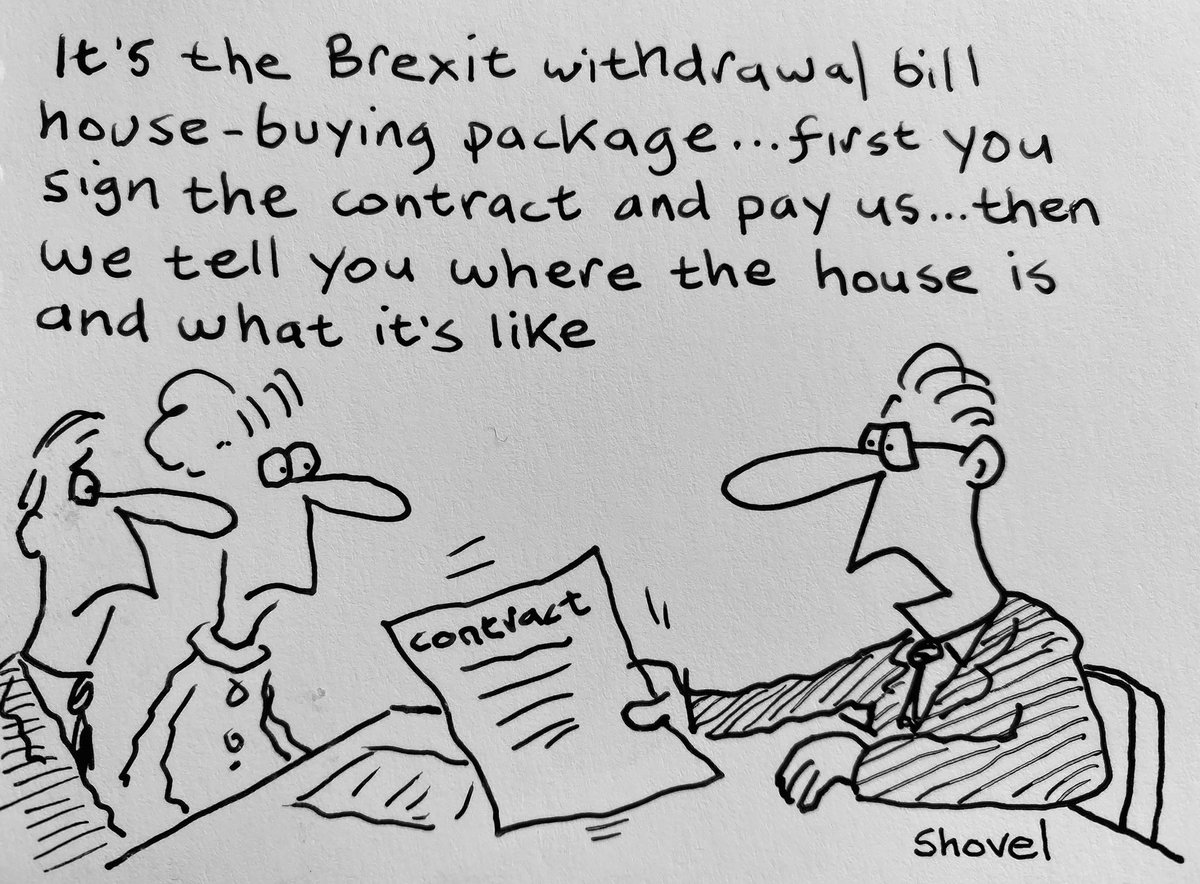 It's the Brexit withdrawal bill
house-buying package...first you
sign the contract and pay us...then
we tell you where the house is
and what it's like
contract
Shovel